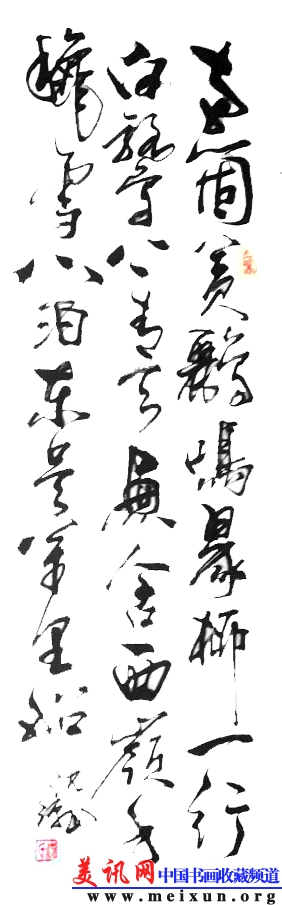 兩箇黃鸝鳴翠柳一行
白鷺上青天窗含西嶺千
秋雪門泊東吳萬里船
美讯网 中国书画收藏频道
www.meixun.org